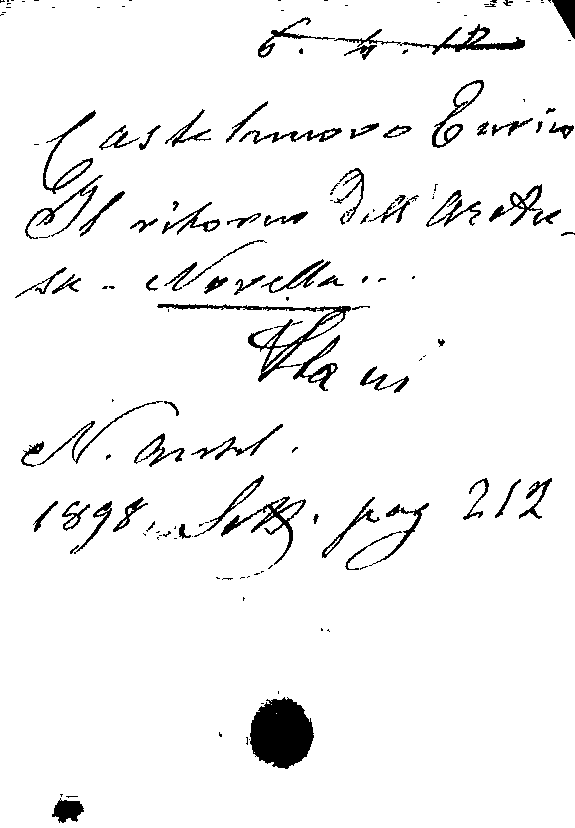 6. 4. 12
Castelnuovo Enrico
Il ritorno dell'Aretu-
sa - Novella...
N. Antol.
1898. Sett. pag 212